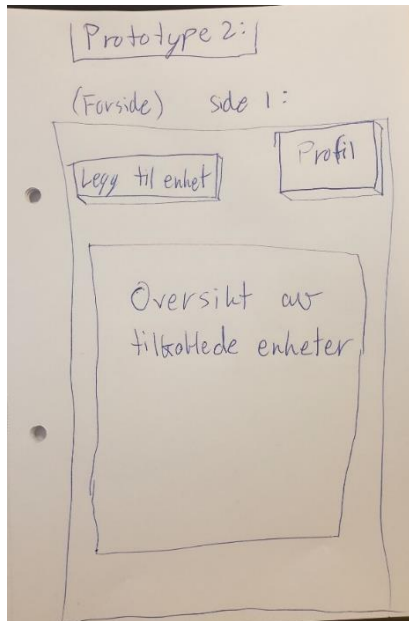 Prototype 2:
(Forside) side 1:
Legg til enhet
Profil
Oversikt av
tilkoblede enheter